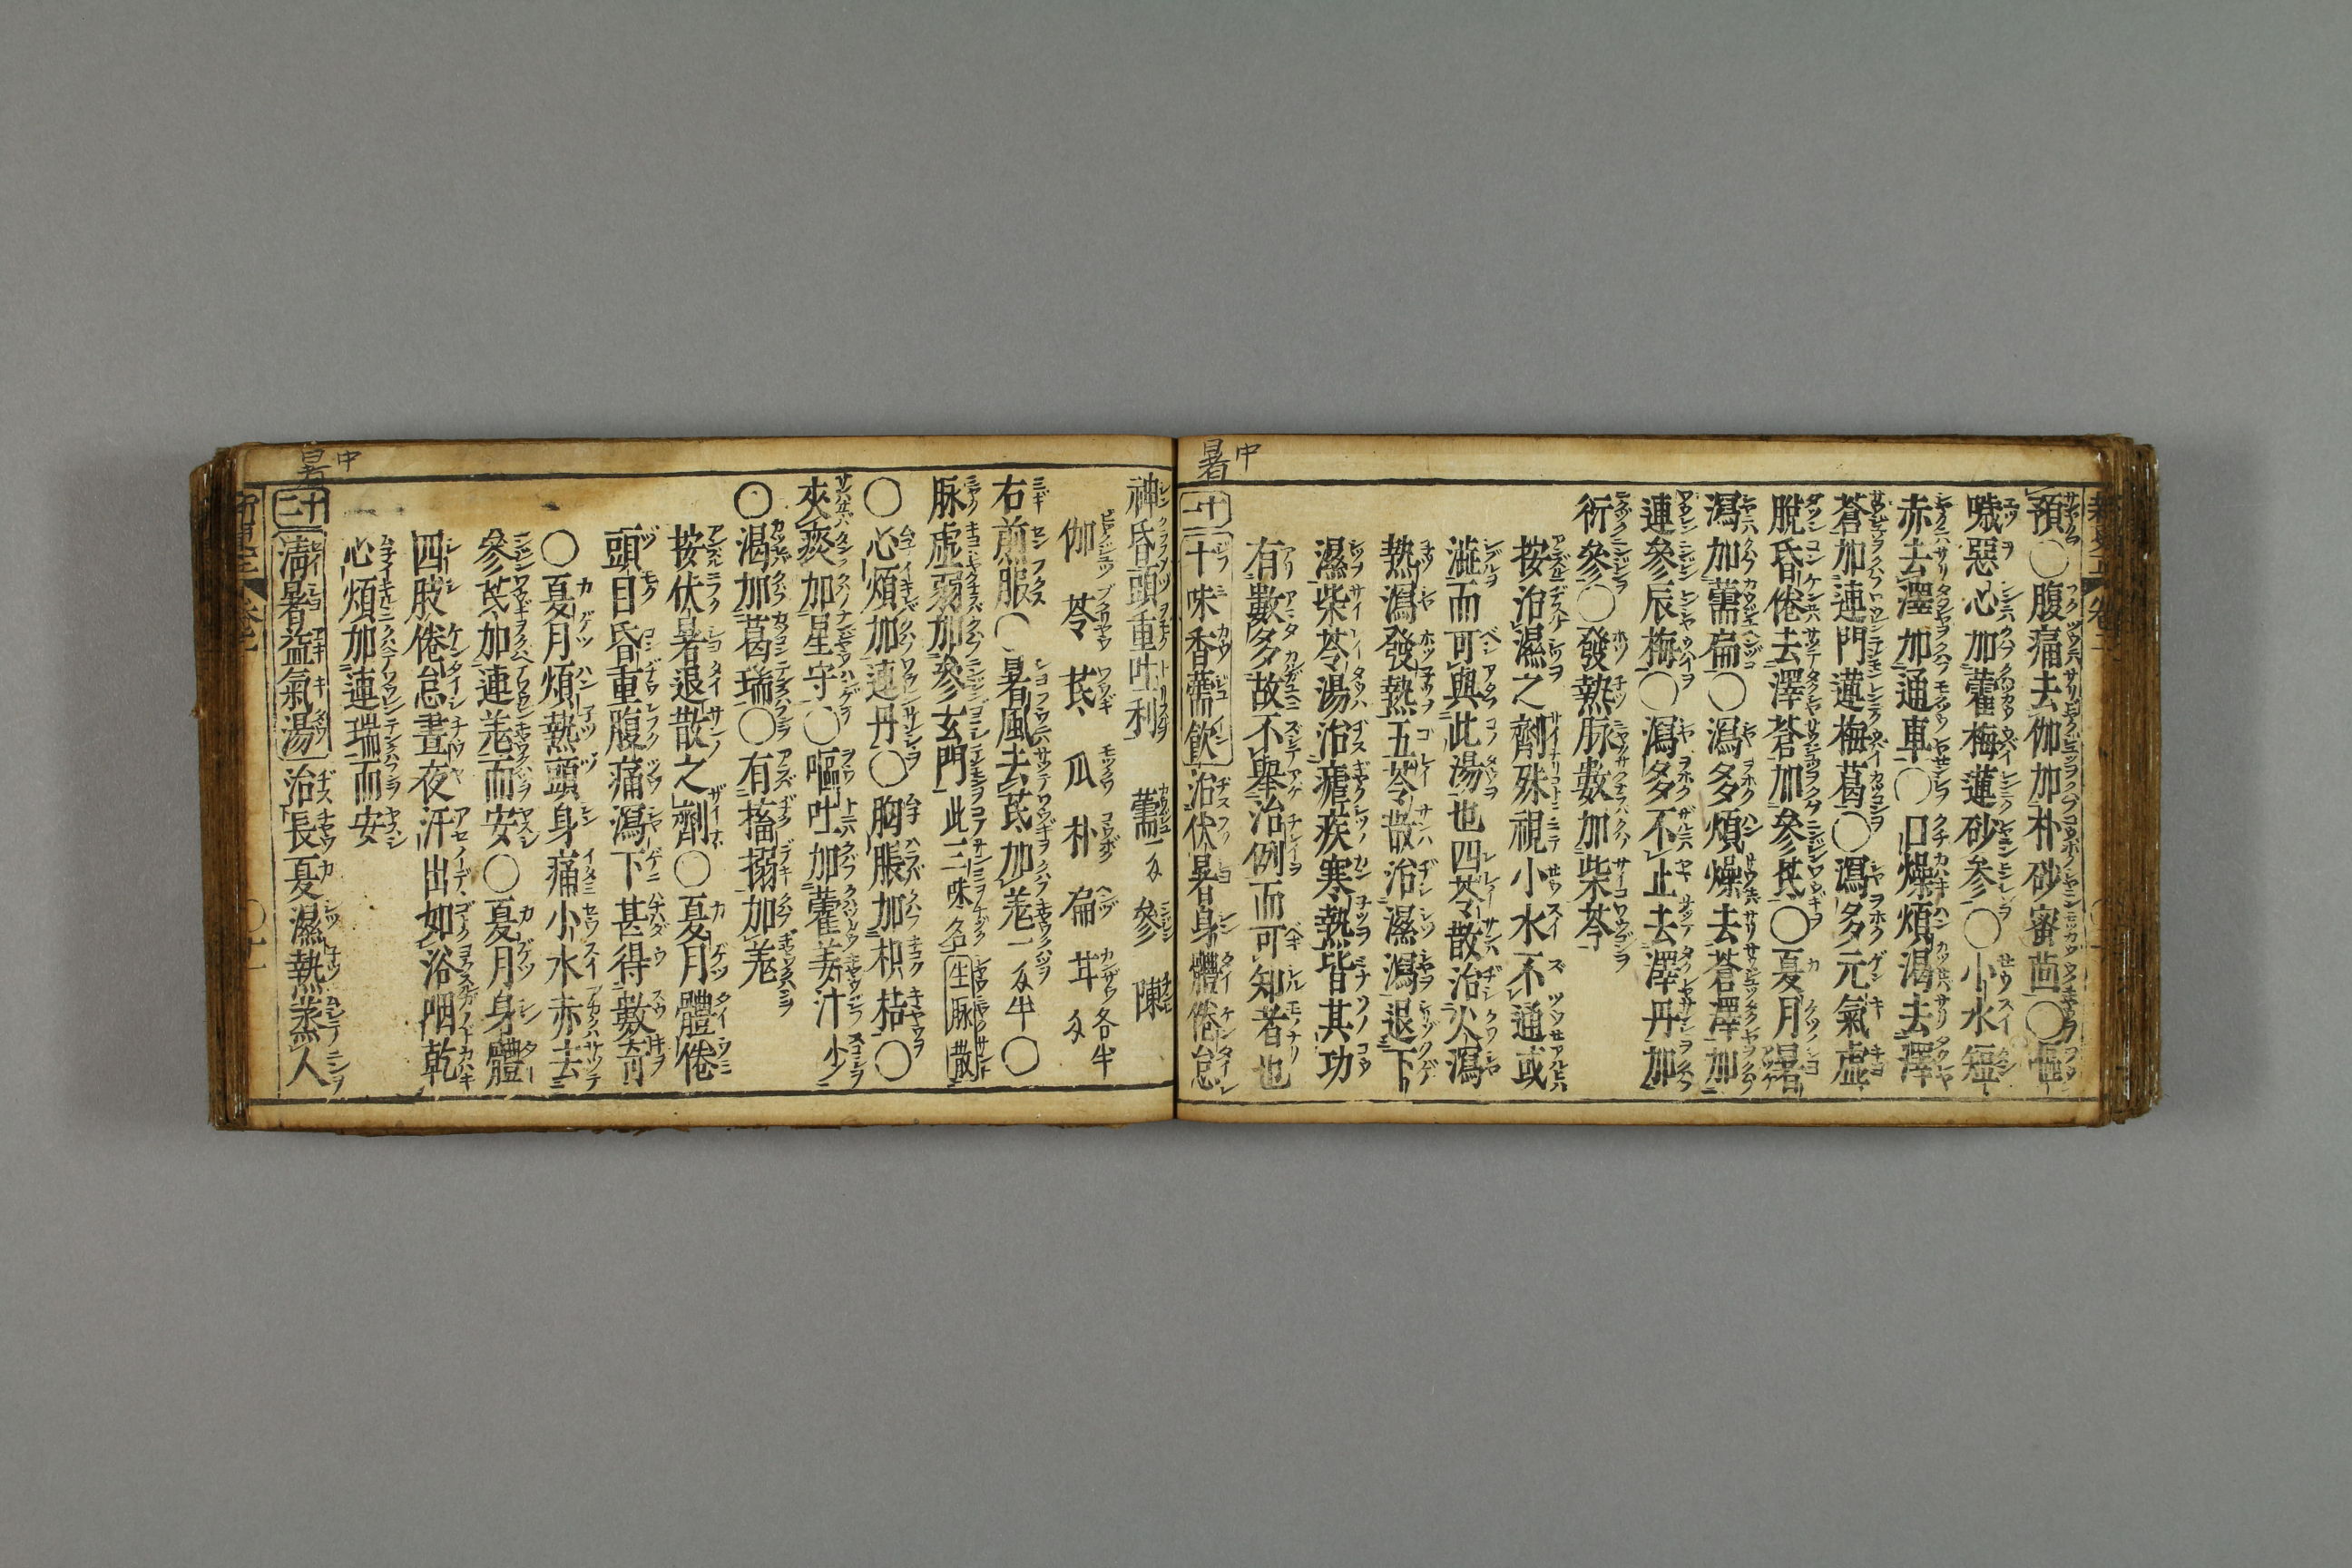 中暑
預〇腹痛去伽加朴砂蜜茴〇
噦惡心加藿梅蓮砂參〇小水短
赤去澤加通車〇口燥煩渴去澤
蒼加連門蓮梅葛〇瀉多元氣虛
脫昏倦去澤蒼加參芪〇夏月暑
瀉加薷扁〇瀉多煩燥去蒼澤加
連參辰梅〇瀉多不止去澤丹加
衍參〇發熱脉數加柴芩
按治濕之劑殊視小水不通或
澁而可與此湯也四苓散治火瀉
熱瀉發熱五苓散治濕瀉退下
濕柴苓湯治瘧疾寒熱皆其功
有數多故不舉治例而可知者也
十一
十味香薷飲治伏暑身體倦怠
神昏頭重吐利 薷 參 陳
伽 苓 芪 瓜 朴 扁 甘各半
右煎服〇暑風去芪加羌一 半〇
脉虛弱加參玄門此三味名生脉散
〇心煩加連丹〇胸脹加枳桔〇
夾痰加星守〇嘔吐加藿姜汁少
〇渴加葛瑞〇有搐搦加羌
按伏暑退散之劑〇夏月體倦
頭目昏重腹痛瀉下甚得數奇
〇夏月煩熱頭身痛小水赤去
參芪加連羌而安〇夏月身體
四肢倦怠晝夜汗出如浴咽乾
心煩加連瑞而安
中暑
十二
淸暑益氣湯治長夏濕熱蒸人